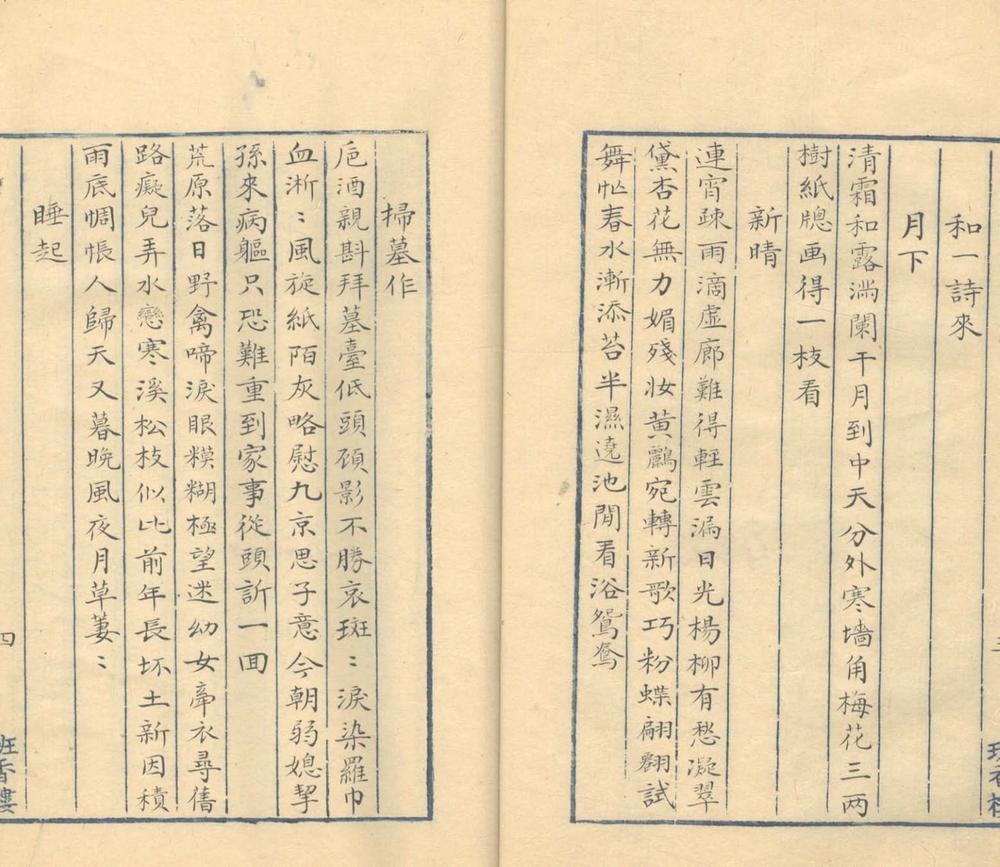 和一詩來
月下
清霜和露滿闌干月到中天分外寒墻角梅花三两
樹紙牎画得一枝看
新晴
連宵疎雨滴虛廊難得輕雲漏日光楊柳有愁凝翠
黛杏花無力媚殘妝黄鸝宛轉新歌巧粉蝶翩翾試
舞忙春水漸添苔半濕遶池閒看浴鴛鴦
掃墓作
巵酒親斟拜墓臺低頭頋影不勝哀斑〻淚染羅巾
血淅〻風旋紙陌灰略慰九京思子意今朝弱媳挈
孫來病軀只恐難重到家事從頭訴一囬
荒原落日野禽啼淚眼糢糊極望迷幼女牽衣尋舊
路癡兒弄水戀寒溪松枝似比前年長坏土新因積
雨底惆悵人歸天又暮晚風夜月草萋〻
睡起
四